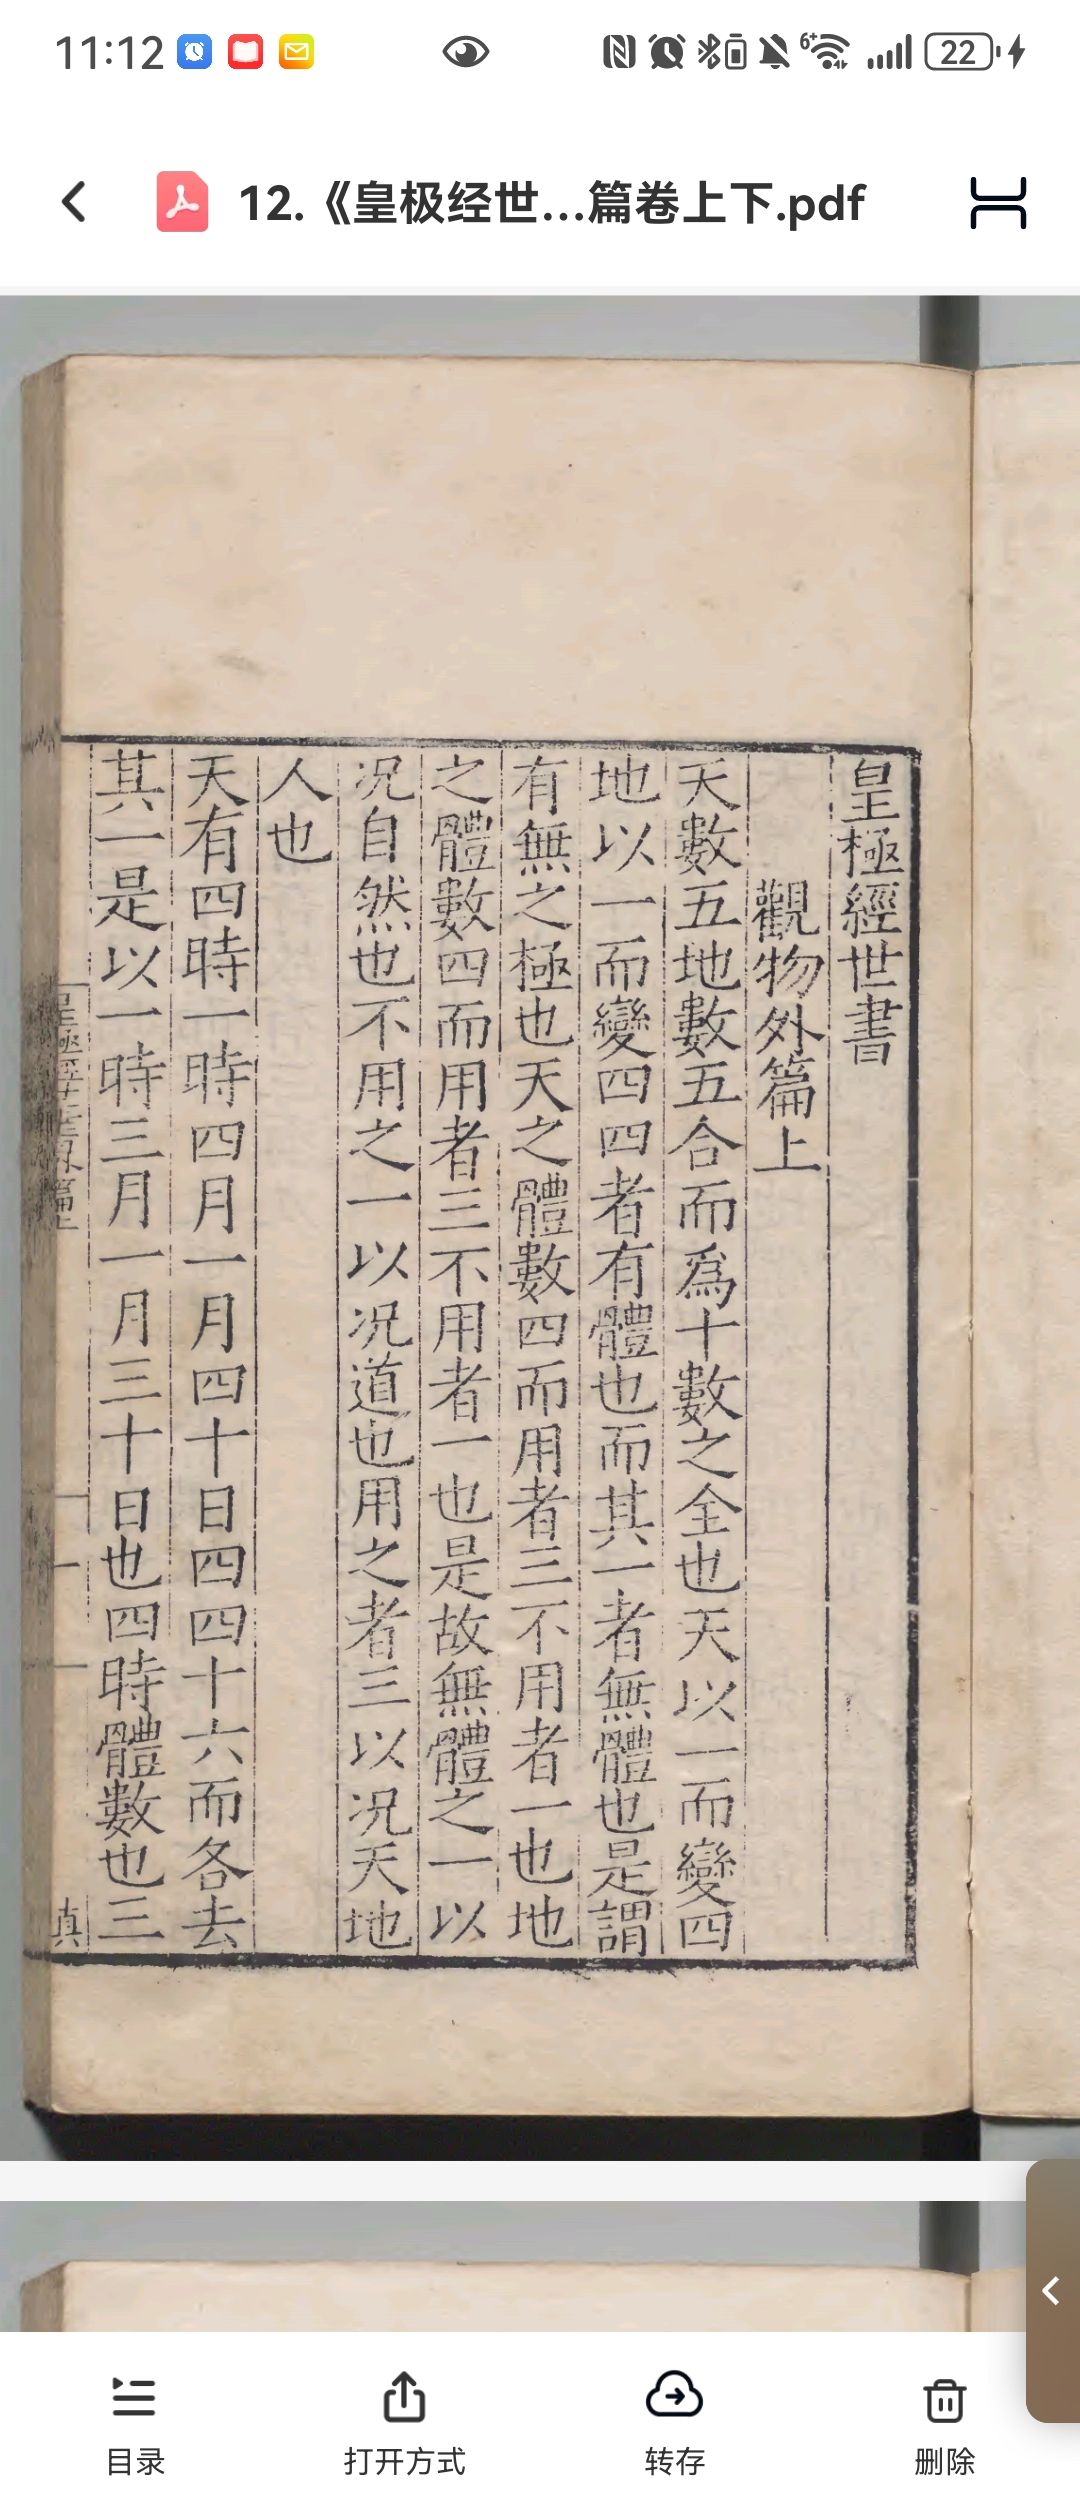 11:12
6+
22
12.《皇极经世...篇卷上下.pdf
皇極經世書
觀物外篇上
天數五地數五合而爲十數之全也天以一而變四
地以一而變四四者有體也而其一者無體也是謂
有無之極也天之體數四而用者三不用者一也地
之體數四而用者三不用者一也是故無體之一以
况自然也不用之一以况道也用之者三以况天地
人也
天有四時一時四月一月四十日四四十六而各去
其一是以一時三月一月三十日也四時體數也三
真
目录
打开方式
转存
删除